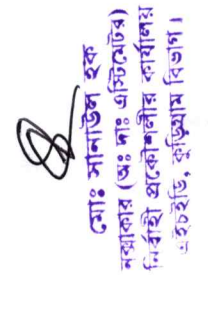 মোঃ সানাউল হক
নক্সাকার (অঃ দাঃ এস্টিমেটর)
নির্বাহী প্রকৌশলীর কার্যালয়
এইচইডি, কুড়িগ্রাম বিভাগ।